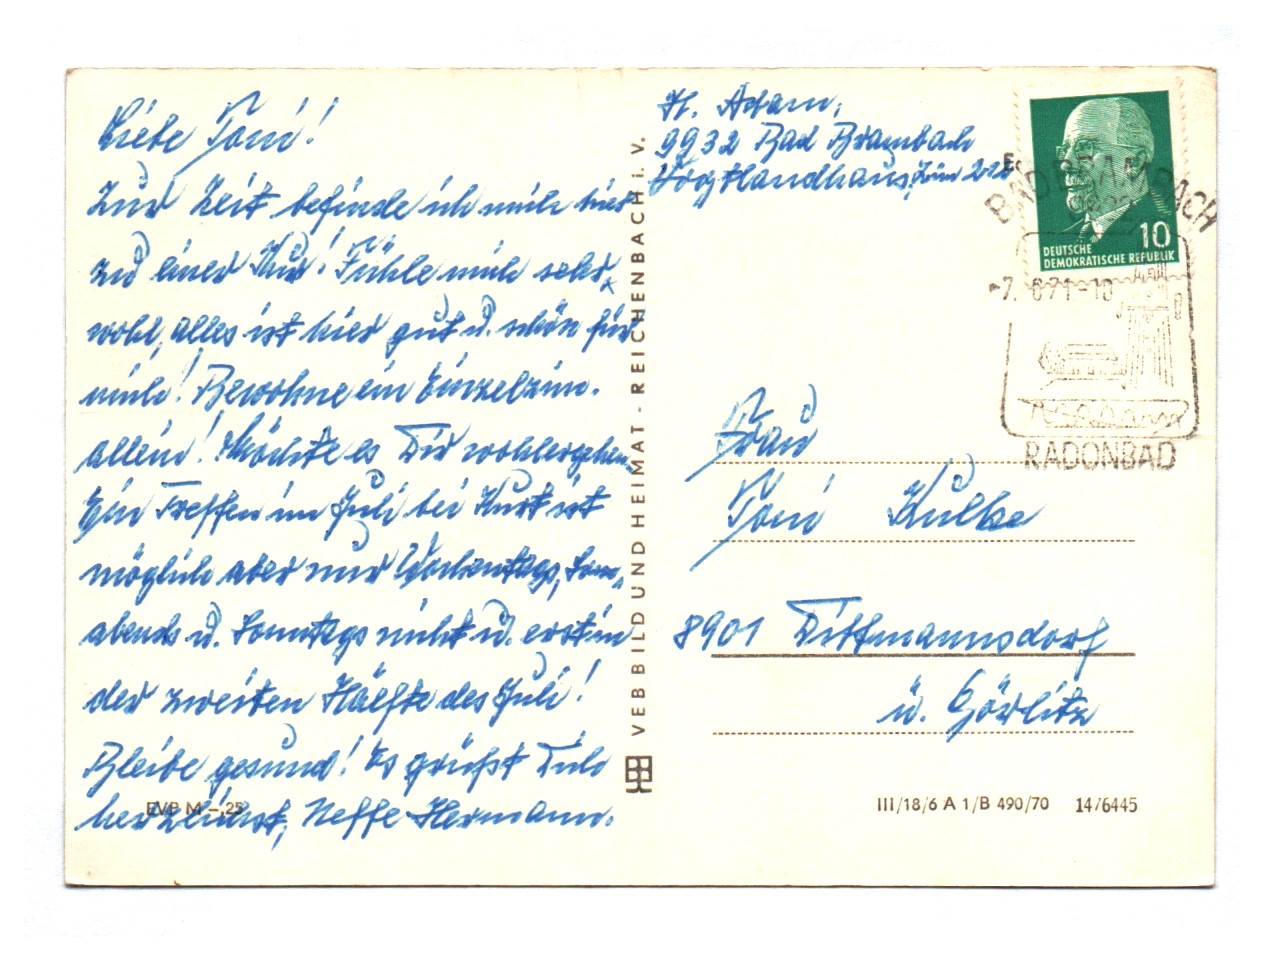 Liebe Toni!
Zur Zeit befinde ich mich hier
zu einer Kur! Fühle mich sehr
wohl, alles ist hier gut u. schön für
mich! Bewohne ein Einzelzim.
allein! Möchte es Dir wohlergehen.
Ein Treffen im Juli bei Kurt ist
möglich aber nur Wochentags, Sonn-
abends u. Sonntags nicht u. erst in
der zweiten Hälfte des Juli!
Bleibe gesund! Es grüßt Dich
herzlichst, Neffe Hermann.
EVP M -,25
VEB BILD UND HEIMAT - REICHENBACH i. V.
H. Adam,
9932 Bad Brambach
Vogtlandhaus, Zim.
10
DEUTSCHE
DEMOKRATISCHE REPUBLIK
BAD BRAMBACH
9932
-7. 6.71-10
RADONBAD
Frau
Toni Kulke
8901 Dittmannsdorf
ü. Görlitz
III/18/6 A 1/B 490/70 14/6445